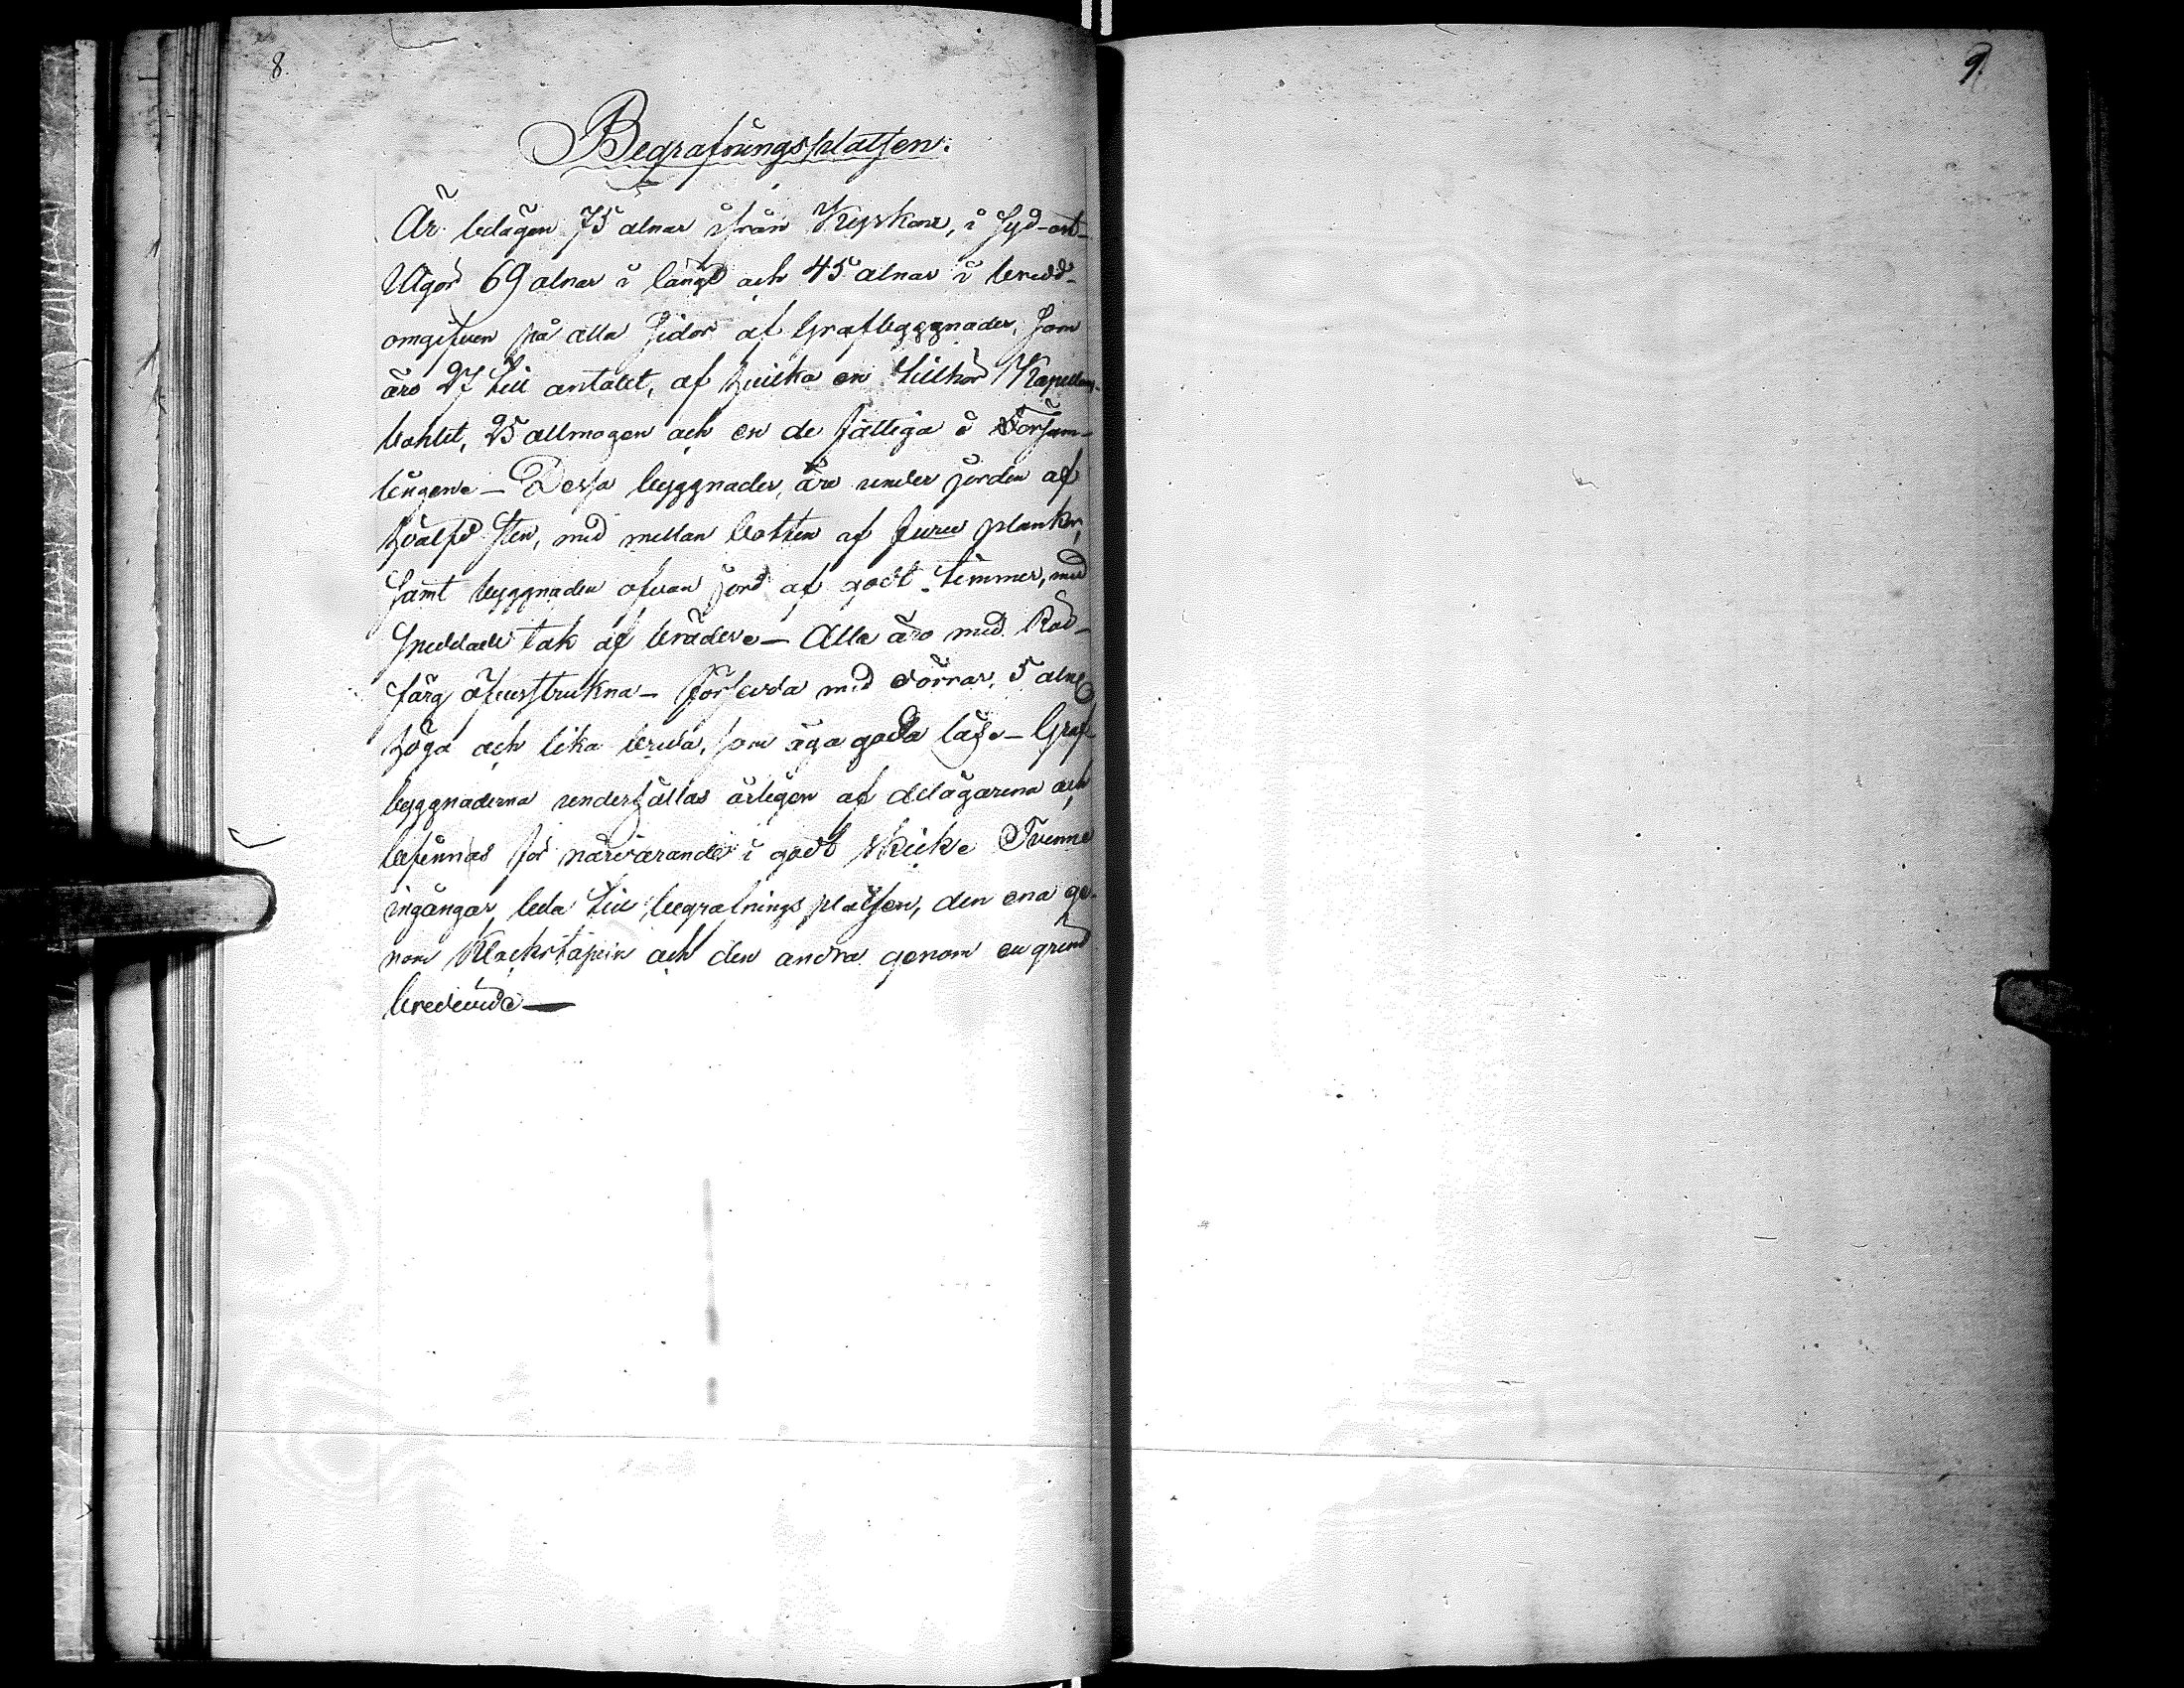 8.
9.
Begrafningsplatsen.
Är belägen 75 alnar ifrån Kyrkan, i Syd-ost-
Utgör 69 alnar i längd och 45 alnar i bredd-
omgifven på alla sidor af Grafbyggnader, som
äro 27 till antalet, af hvilka en tillhör Kapellans-
bohlet, 25 allmogen och en de fattiga i Försam-
lingen. — Dessa byggnader, äro under jorden af
hvälfd sten, med mellan botten af furu plankor,
samt byggnaden ofvan jord af godt timmer, med
sneddade tak af bräder. — Alla äro med Röd-
färg öfverstrukna — försedda med dörrar, 5 aln
höga och lika breda, som äga goda lås. — Graf-
byggnaderna underhållas årligen af delägarena och
befinnas för närvarande i godt skick. Tvenne
ingångar, leda till begrafnings platsen, den ena ge-
nom Klockstapeln och den andra genom en grind
bredevid. —